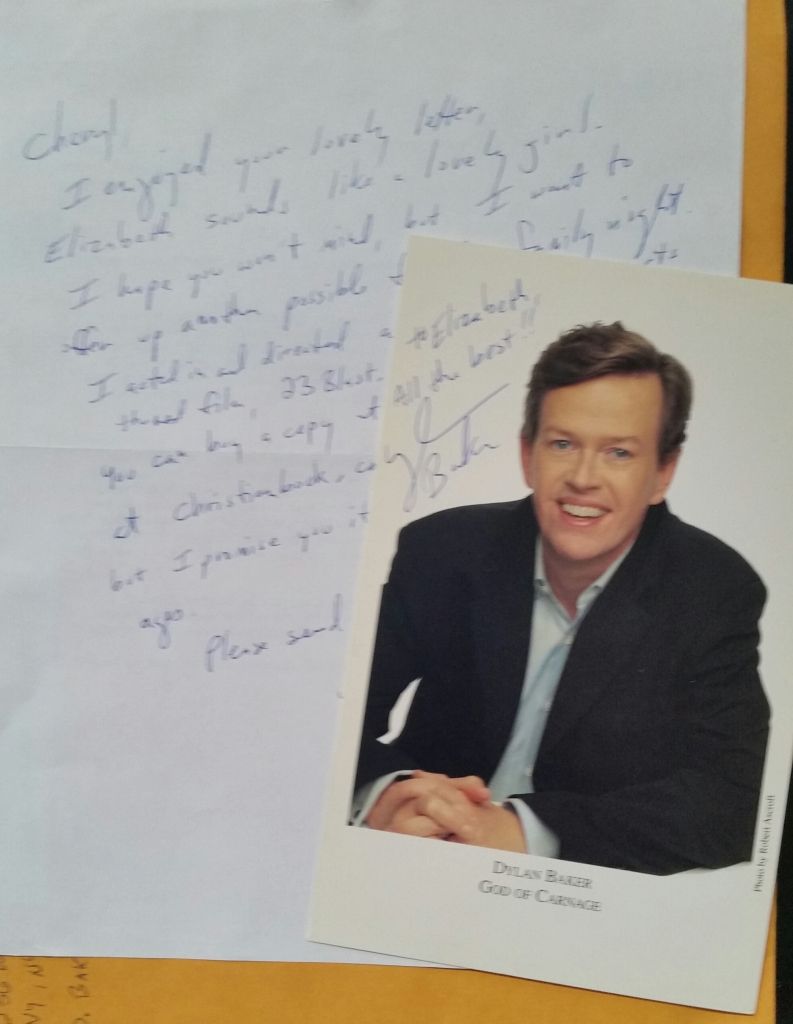 Cheryl,
I enjoyed your lovely letter,
Elizabeth sounds like a lovely girl.
I hope you won't mind, but I want to
offer up another possible family night.
I acted in and directed a
film, 23 Blast.
You can buy a copy at
at Christianbook.com
but I promise you it
ago.
Please send
to Elizabeth,
All the best!!
Baker
DYLAN BAKER
GOD OF CARNAGE
Photo by Robert Ascroft